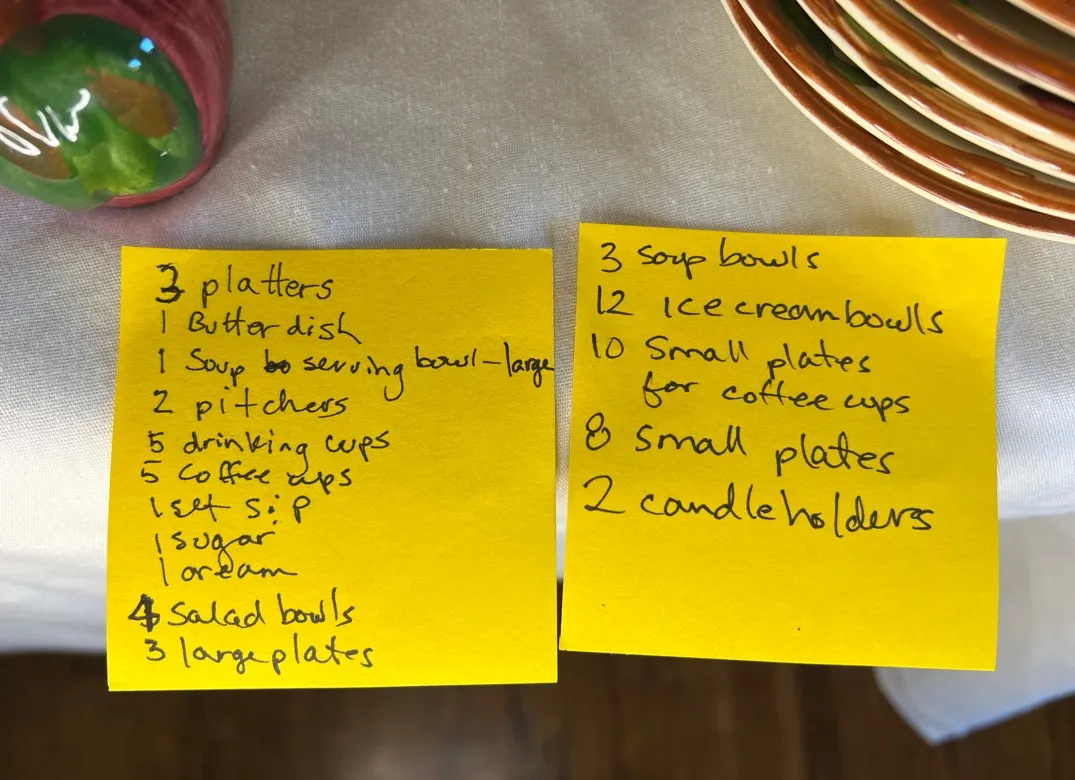 3 platters
1 Butter dish
1 Soup serving bowl - large
2 pitchers
5 drinking cups
5 coffee cups
1 set s:p
1 sugar
1 cream
4 Salad bowls
3 large plates
3 soup bowls
12 Ice cream bowls
10 Small plates
for coffee cups
8 small plates
2 candleholders